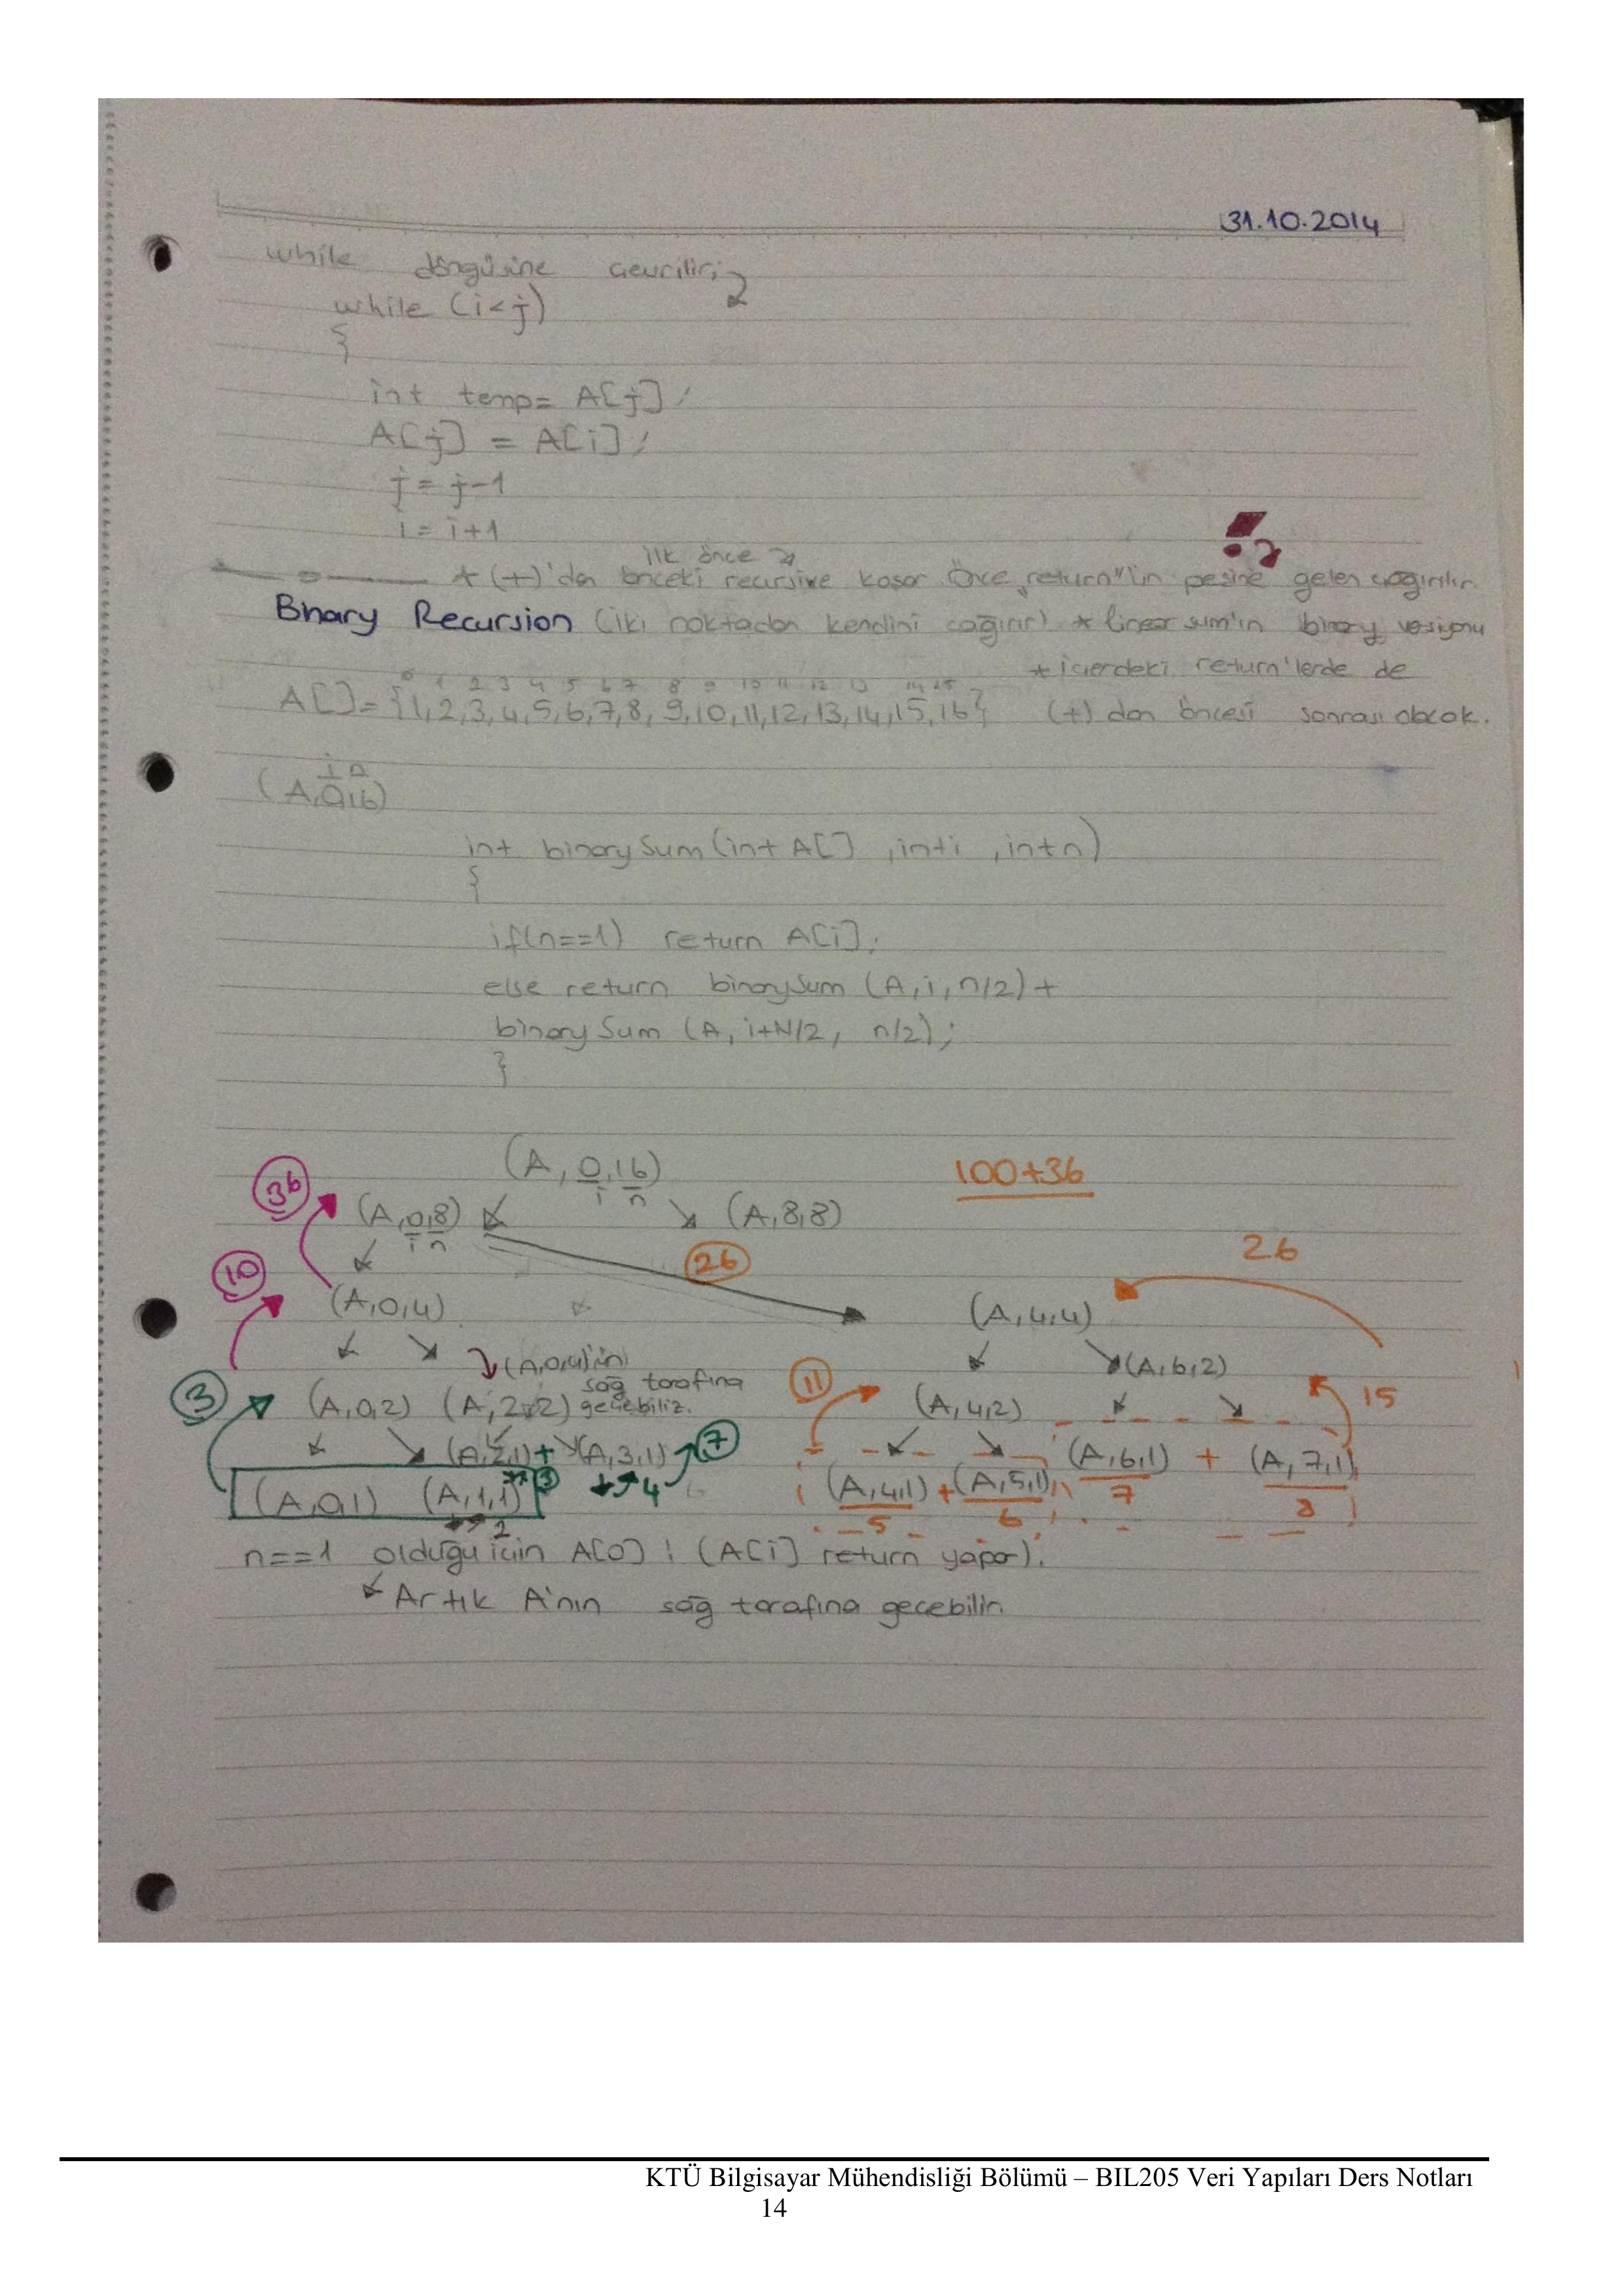 31.10.2014
while döngüsüne çevrilir;
while (i<j)
{
int temp= A[j];
A[j] = A[i];
j = j-1
i = i+1
ilk önce
* (+)'dan önceki recursive koşar Önce "return"ün peşine gelen çağırılır.
Binary Recursion (iki noktadan kendini çağırır) * linear sum'ın binary versiyonu
* içerdeki return'lerde de
0 1 2 3 4 5 6 7 8 9 10 11 12 13 14 15
A[]={1,2,3,4,5,6,7,8,9,10,11,12,13,14,15,16} (+) dan öncesi sonrası olacak.
i n
(A,0,16)
int binarySum(int A[] ,int i ,int n)
{
if(n==1) return A[i];
else return binarySum (A,i,n/2)+
binarySum (A, i+N/2, n/2);
}
(A, 0,16) 100+36
i n
36 (A,0,8) (A,8,8)
i n
10 26 26
(A,0,4) (A,4,4)
(A,0,4)'ün (A,6,2)
sağ tarafına 11
3 (A,0,2) (A,2,2) geçebiliz. (A,4,2) 15
(A,2,1)+(A,3,1) 7 (A,6,1) + (A,7,1)
3 4 7 8
(A,0,1) (A,1,1) (A,4,1)+(A,5,1)
2 5 6
n==1 olduğu için A[0] ! (A[i] return yapar).
Artık A'nın sağ tarafına geçebilir.
KTÜ Bilgisayar Mühendisliği Bölümü – BIL205 Veri Yapıları Ders Notları
14